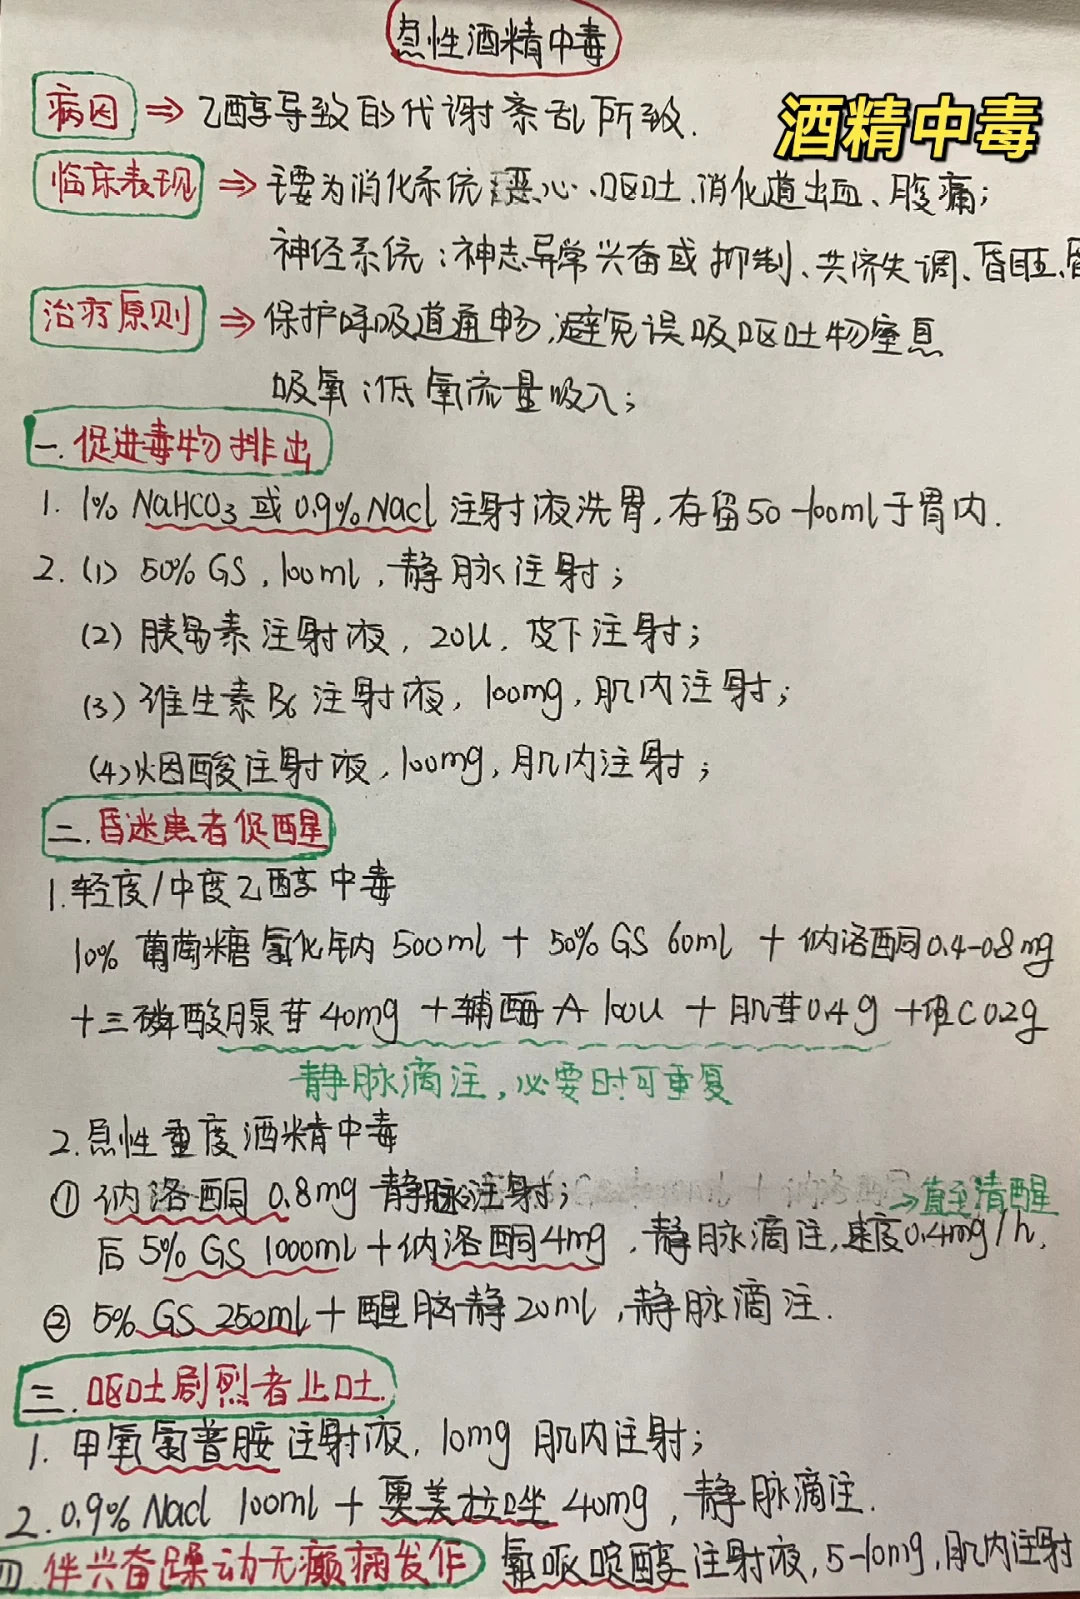 急性酒精中毒
酒精中毒
病因 ⇒ 乙醇导致的代谢紊乱所致.
临床表现 ⇒ 主要为消化系统:恶心、呕吐、消化道出血、腹痛;
神经系统:神志异常兴奋或抑制、共济失调、昏睡、昏
治疗原则 ⇒ 保护呼吸道通畅,避免误吸呕吐物窒息
吸氧:低氧流量吸入;
一.促进毒物排出
1. 1% NaHCO3 或 0.9% Nacl 注射液洗胃,存留50-100ml于胃内.
2. (1) 50% GS, 100ml, 静脉注射;
(2) 胰岛素注射液, 20U, 皮下注射;
(3) 维生素B6注射液, 100mg, 肌内注射;
(4) 烟酸注射液, 100mg, 肌内注射;
二.昏迷患者促醒
1.轻度/中度乙醇中毒
10% 葡萄糖氯化钠 500ml + 50% GS 60ml + 纳洛酮0.4-0.8mg
+三磷酸腺苷40mg +辅酶A 100U + 肌苷0.4g +维C 02g
静脉滴注,必要时可重复
2.急性重度酒精中毒
① 纳洛酮 0.8mg 静脉注射; →直至清醒
后 5% GS 1000ml+纳洛酮4mg,静脉滴注,速度0.4mg/h,
② 5% GS 250ml+醒脑静20ml,静脉滴注.
三.呕吐剧烈者止吐.
1. 甲氧氯普胺注射液, 10mg 肌内注射;
2. 0.9% Nacl 100ml + 奥美拉唑 40mg, 静脉滴注.
四.伴兴奋躁动无癫痫发作 氟哌啶醇注射液, 5-10mg, 肌内注射